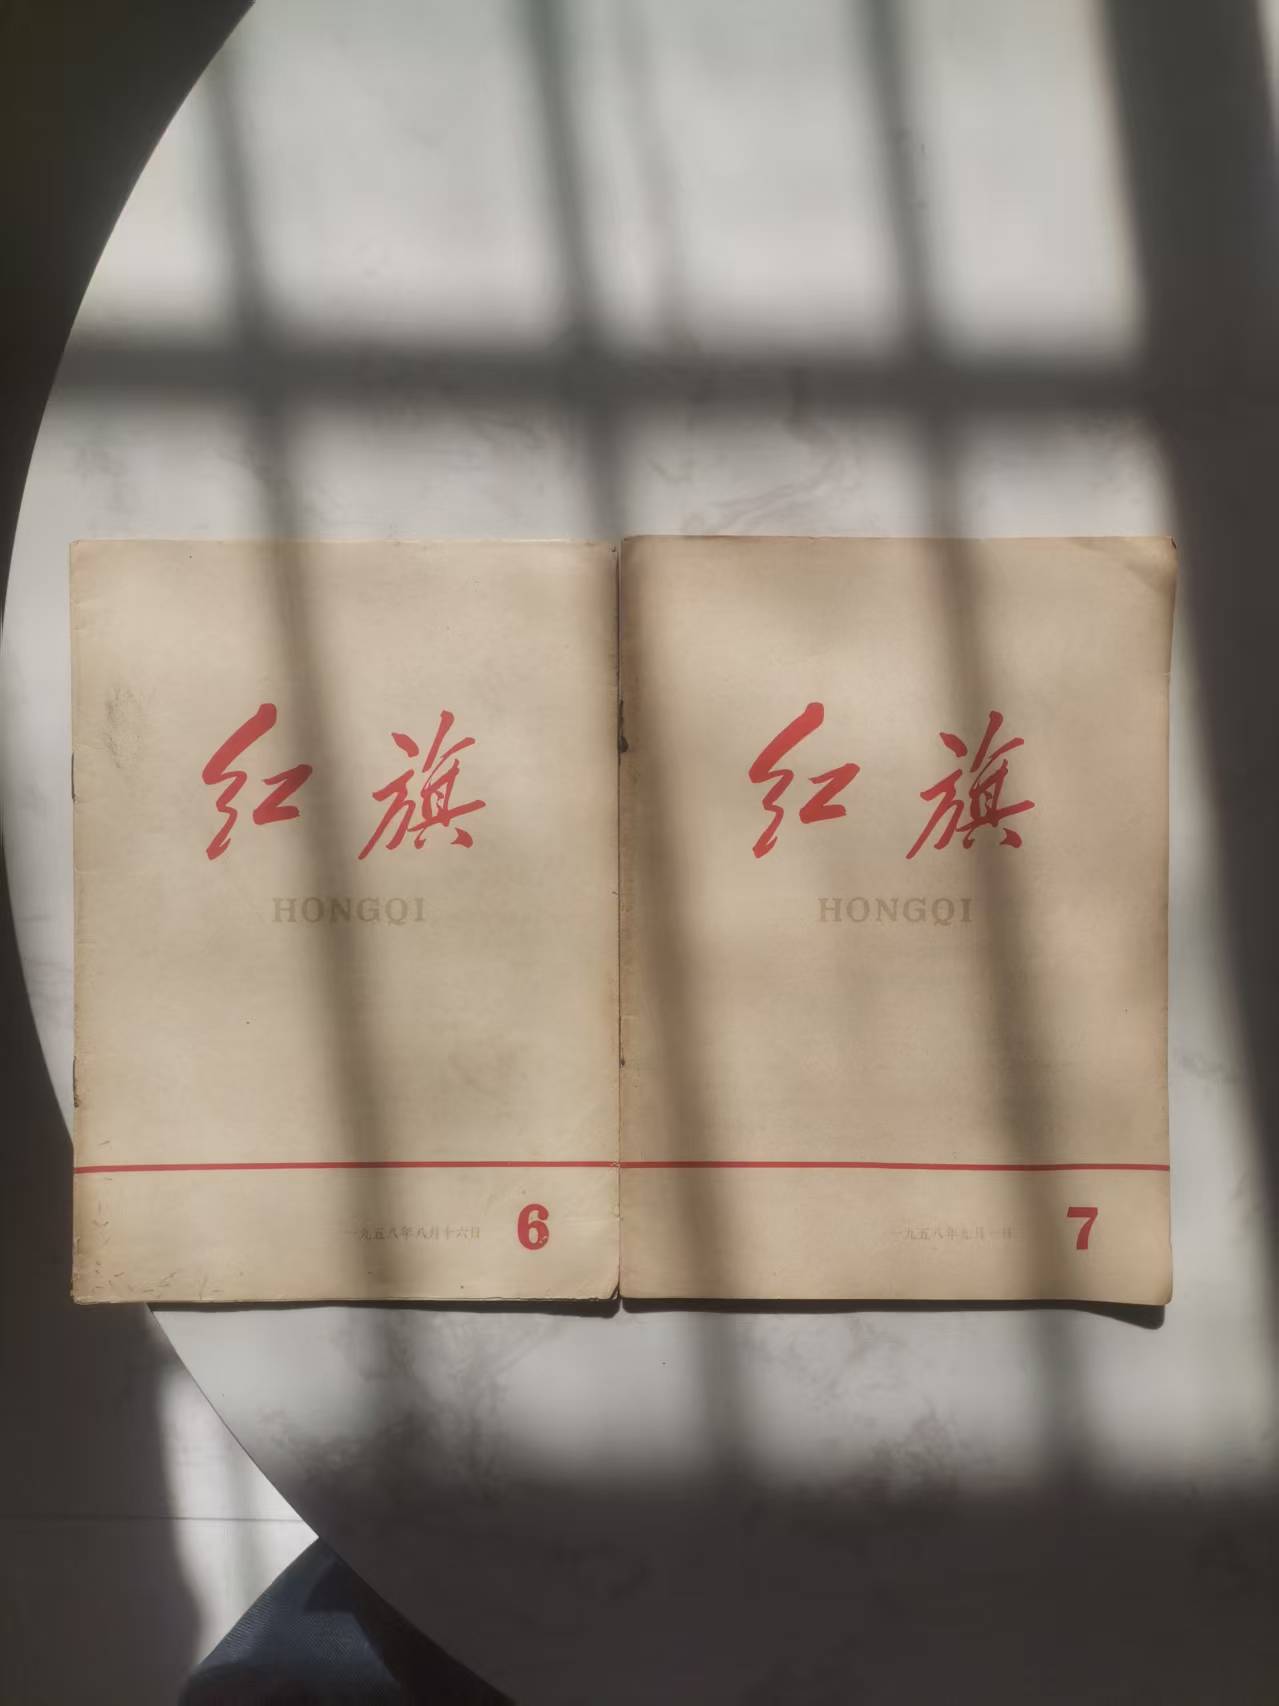 红旗
HONGQI
一九五八年八月十六日 6
红旗
HONGQI
一九五八年九月一日 7